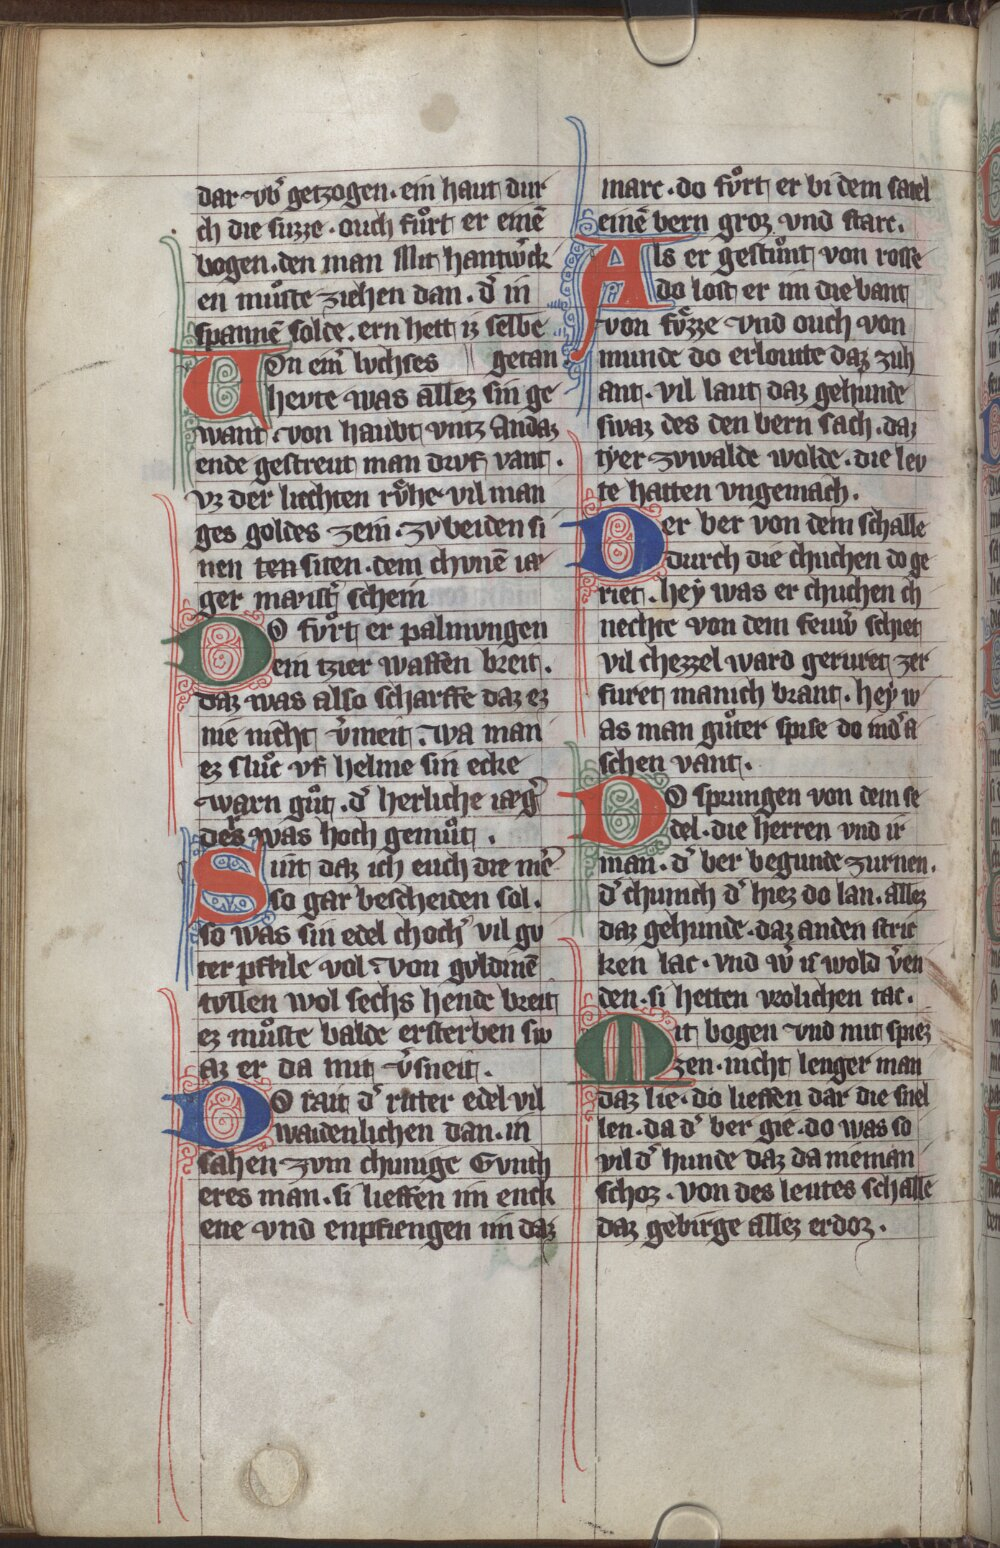 dar vb̾ getzogen · ein haut dur
ch die suzze · ouch fuͦrt er einē
bogen · den man Mit hantw̾ck
en muͦste ziehen dan · d̾ in
spannē solde · ern hett iz selbe
Von eim̾ luchses || getan
hevte was allez sin ge
want · von haubt vntz Andaz
ende gestreut man drvf vant ·
vz der liechten rv̾he vil man
ges goldes zem̄ · zv beiden si
nen ten siten · dem chvnē iæ
ger maist̾ schein
DO fvͦrt er palmvngen
ein tzier waffen breit ·
daz was also scharffe daz ez
nie nicht v̾meit · wa man
ez sluͦc vf helme sin ecke
warn guͦt · d̾ herliche iæg̾
der was hoch gemuͦt ·
Sint daz ich euch die me̾
so gar bescheiden sol ·
so was sin edel choch̾ vil gv
ter pfeile vol · von guldinē
tvllen wol sechs hende breit
ez muͦste balde ersterben sw
az er da mit v̾sneit ·
DO rait d̾ ritter edel vil
waidenlichen dan · in
sahen zvm chunige Gvnth
eres man · si lieffen im enck
ene vnd enpfiengen im daz
marc · do fuͦrt er bi dem satel
einē bern groz vnd starc ·
Als er gestuͦnt von rosse
do lost er im die bant
von fv̾zze vnd ouch von
munde do erloutte daz zuh
ant · vil laut daz gehunde
swaz des den bern sach · daz
tyer zvwalde wolde · die lev
te hatten vngemach ·
Der ber von dem schalle
durch die chuchen do ge
riet · hey was er chuchen ch
nechte von dem fevw̾ schiet
vil chezzel ward geruret zer
furet manich brant · hey w
as man guͦter spise do ind̾ a
schen vant ·
DO sprungen von dem se
del · die herren vnd ir
man · d̾ ber begunde zurnen ·
d̾ chunich d̾ hiez do lan · allez
daz gehunde · daz anden stric
ken lac · vnd w̾ iz wold v̾en
den · si hetten vrolichen tac ·
Mit bogen vnd mit spiez
zen · nicht lenger man
daz lie · do lieffen dar die snel
len · da d̾ ber gie · do was so
vil d̾ hunde daz da nieman
schoz · von des leutes schalle
daz gebirge allez erdoz ·